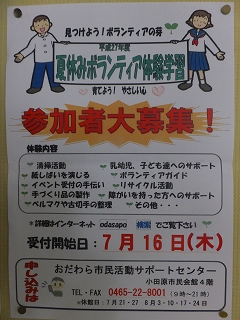 見つけよう！ボランティアの芽
平成27年度
夏休みボランティア体験学習
育てよう！ やさしい心
参加者大募集！
体験内容
清掃活動 乳幼児、子ども達へのサポート
紙しばいを演じる ボランティアガイド
イベント受付の手伝い リサイクル活動
手づくり品の製作 障がいを持った方へのサポート
ベルマークや古切手の整理 その他・・・
＊詳細はインターネット odasapo 検索でご覧下さい
受付開始日：７月16日(木)
申し込みは
おだわら市民活動サポートセンター
小田原市民会館４階
TEL・FAX 0465-22-8001（9時～21時）
＊休館日：7月21・27 8月3・10・17・24日